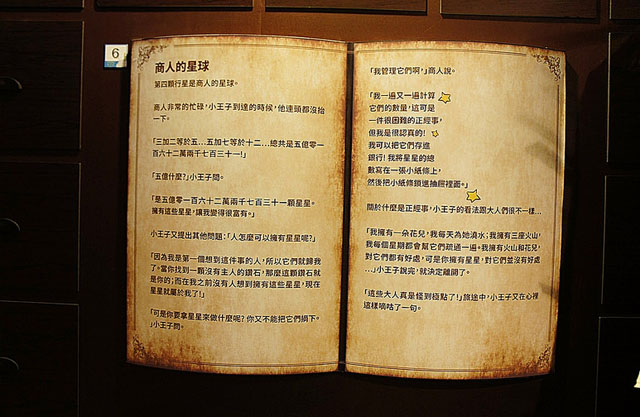 6
商人的星球
第四顆行星是商人的星球。
商人非常的忙碌，小王子到達的時候，他連頭都沒抬
一下。
「三加二等於五…五加七等於十二…總共是五億零一
百六十二萬兩千七百三十一!」
「五億什麼?」小王子問。
「是五億零一百六十二萬兩千七百三十一顆星星。
擁有這些星星，讓我變得很富有。」
小王子又提出其他問題:「人怎麼可以擁有星星呢?」
「因為我是第一個想到這件事的人，所以它們就歸我
了。當你找到一顆沒有主人的鑽石，那麼這顆鑽石就
是你的;而在我之前沒有人想到擁有這些星星，現在
星星就屬於我了!」
「可是你要拿星星來做什麼呢? 你又不能把它們摘下。
」小王子問。
「我管理它們啊，」商人說。
「我一遍又一遍計算
它們的數量，這可是
一件很困難的正經事，
但我是很認真的!
我可以把它們存進
銀行! 我將星星的總
數寫在一張小紙條上，
然後把小紙條鎖進抽屜裡面。」
關於什麼是正經事，小王子的看法跟大人們很不一樣…
「我擁有一朵花兒，我每天為她澆水;我擁有三座火山，
我每個星期都會幫它們疏通一遍。我擁有火山和花兒，
對它們都有好處，可是你擁有星星，對它們並沒有好處
…」小王子說完，就決定離開了。
「這些大人真是怪到極點了!」旅途中，小王子又在心裡
這樣嘀咕了一句。